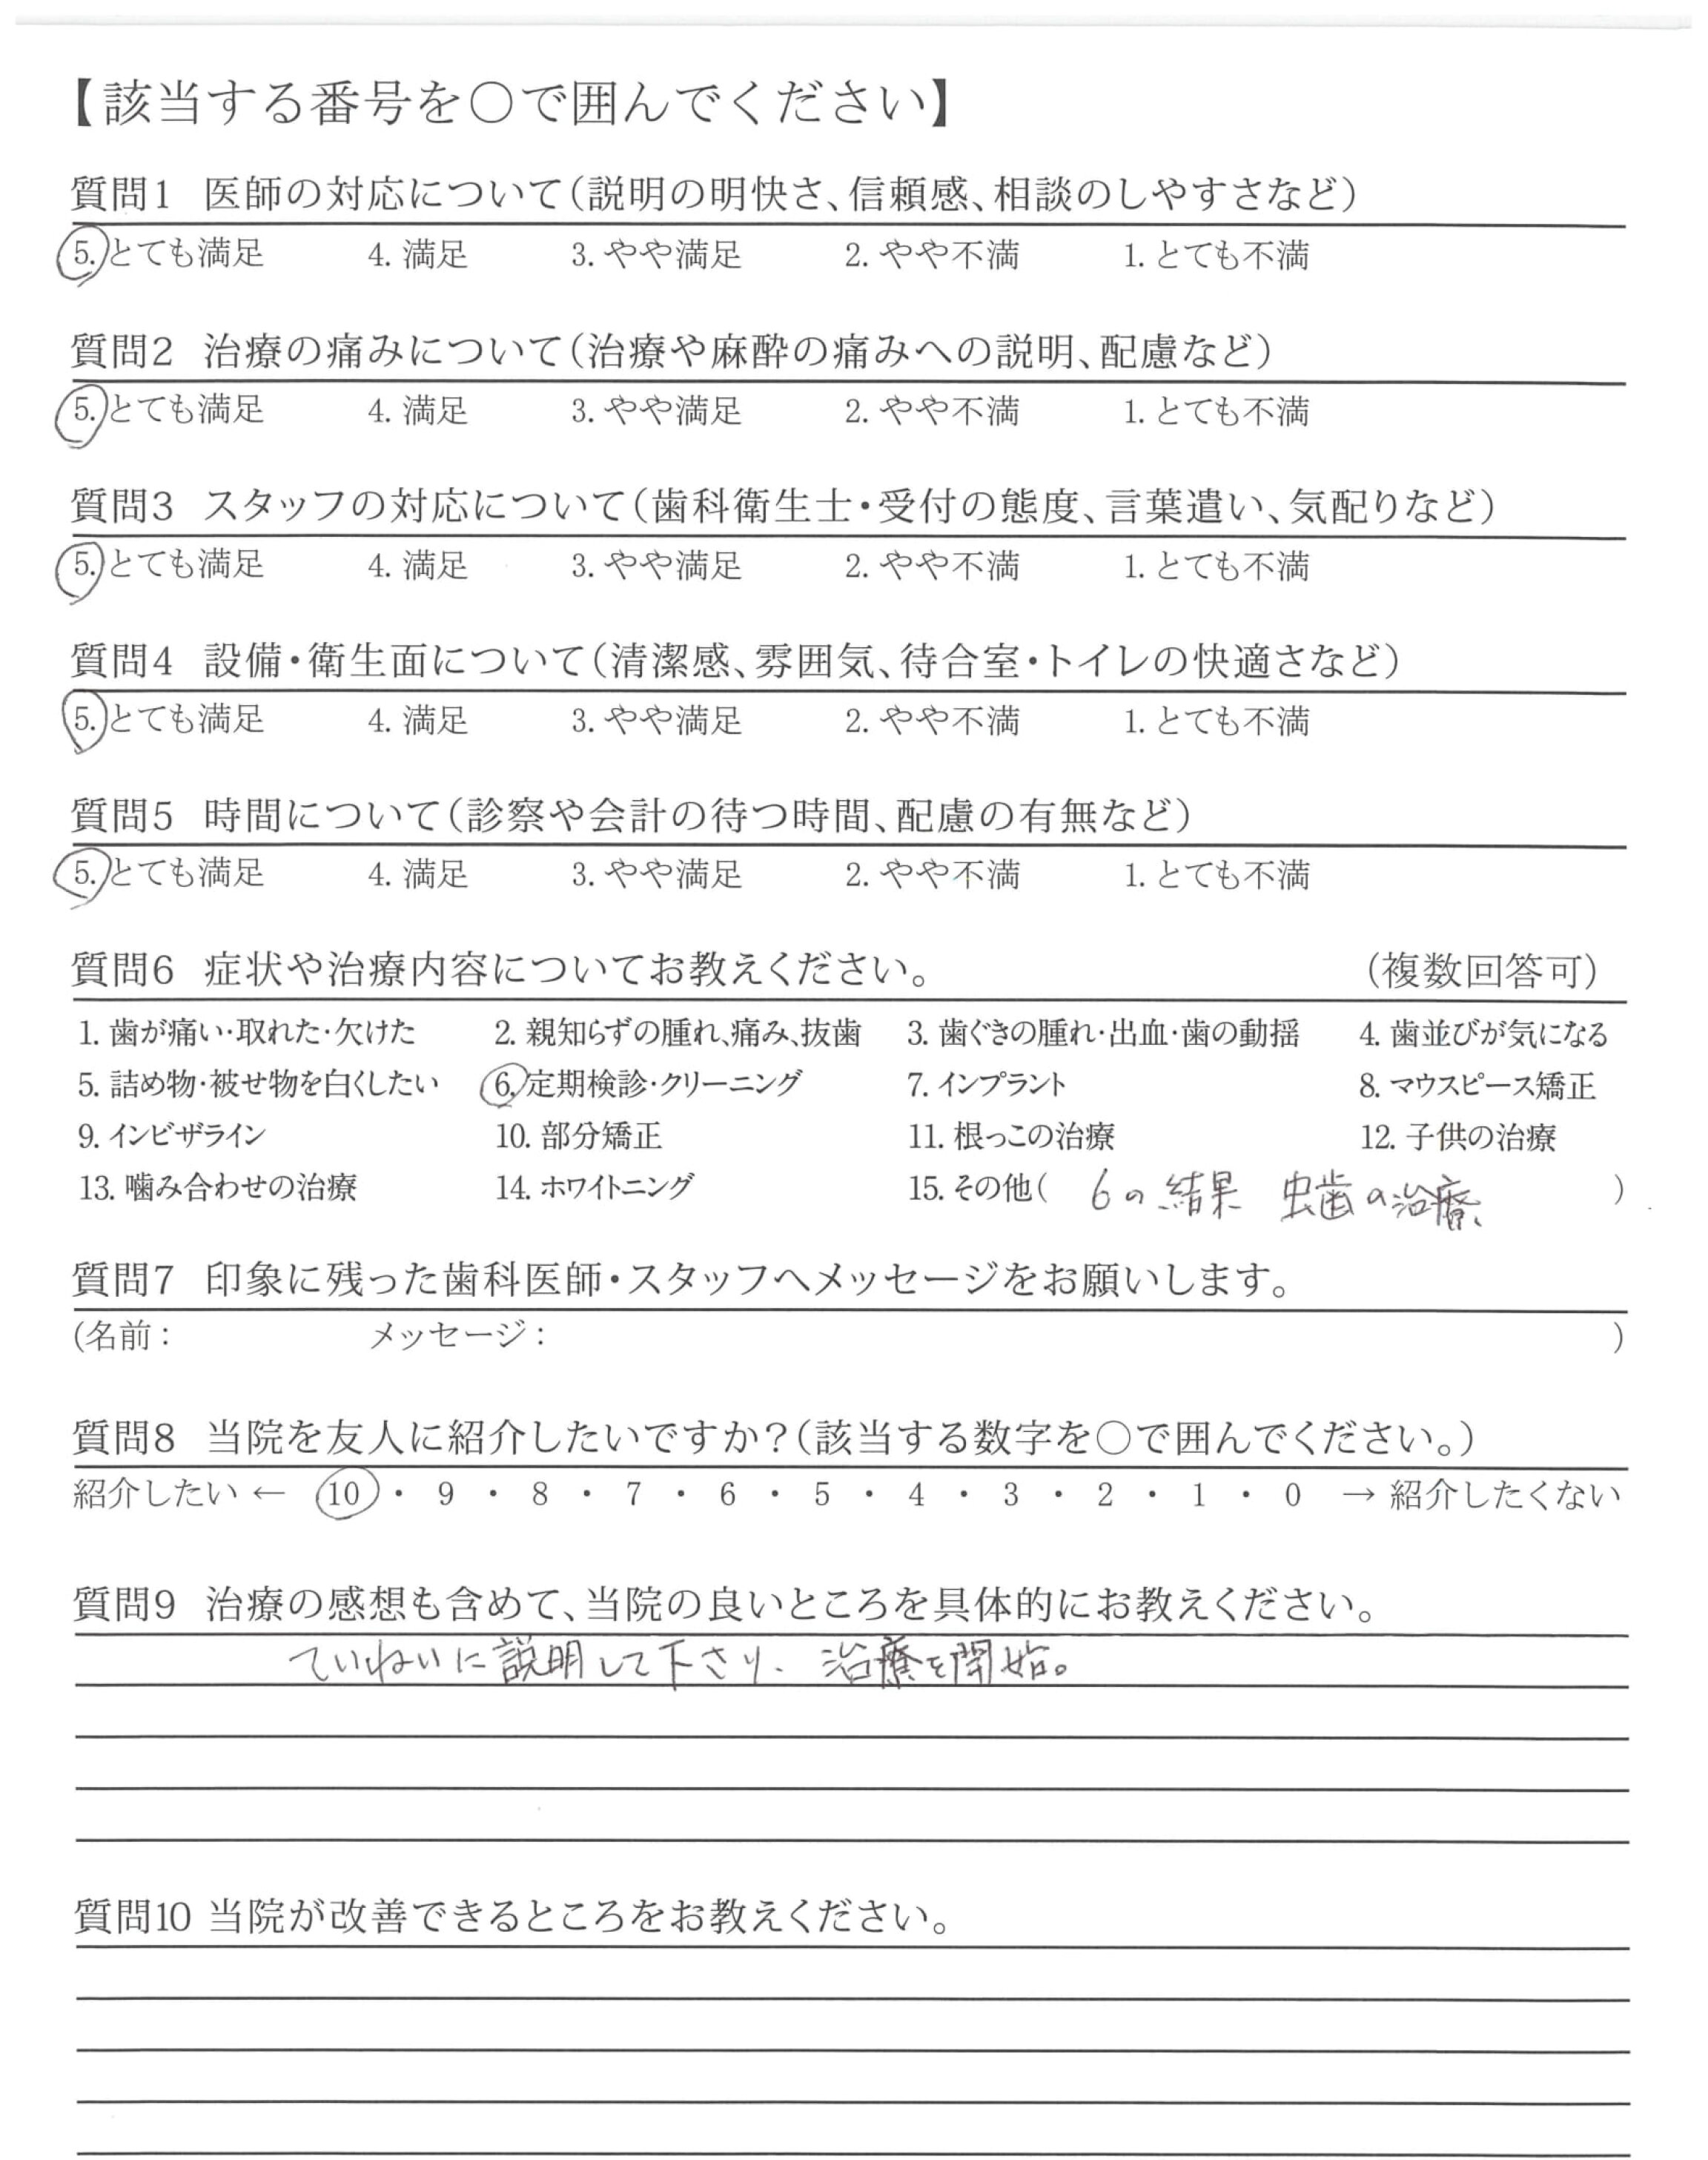 【該当する番号を○で囲んでください】
質問1 医師の対応について(説明の明快さ、信頼感、相談のしやすさなど)
5.とても満足 4. 満足 3. やや満足 2. やや不満 1. とても不満
質問2 治療の痛みについて(治療や麻酔の痛みへの説明、配慮など)
5.とても満足 4. 満足 3. やや満足 2. やや不満 1. とても不満
質問3 スタッフの対応について(歯科衛生士・受付の態度、言葉遣い、気配りなど)
5.とても満足 4. 満足 3. やや満足 2. やや不満 1. とても不満
質問4 設備・衛生面について(清潔感、雰囲気、待合室・トイレの快適さなど)
5.とても満足 4. 満足 3. やや満足 2. やや不満 1. とても不満
質問5 時間について(診察や会計の待つ時間、配慮の有無など)
5.とても満足 4. 満足 3. やや満足 2. やや不満 1. とても不満
質問6 症状や治療内容についてお教えください。 (複数回答可)
1. 歯が痛い・取れた・欠けた 2. 親知らずの腫れ、痛み、抜歯 3. 歯ぐきの腫れ・出血・歯の動揺 4. 歯並びが気になる
5. 詰め物・被せ物を白くしたい 6.定期検診・クリーニング 7. インプラント 8. マウスピース矯正
9. インビザライン 10. 部分矯正 11. 根っこの治療 12. 子供の治療
13. 噛み合わせの治療 14. ホワイトニング 15. その他( 6の結果 虫歯の治療、 )
質問7 印象に残った歯科医師・スタッフへメッセージをお願いします。
(名前: メッセージ: )
質問8 当院を友人に紹介したいですか?(該当する数字を○で囲んでください。)
紹介したい ← 10 ・ 9 ・ 8 ・ 7 ・ 6 ・ 5 ・ 4 ・ 3 ・ 2 ・ 1 ・ 0 → 紹介したくない
質問9 治療の感想も含めて、当院の良いところを具体的にお教えください。
ていねいに説明して下さり、治療を開始。
質問10 当院が改善できるところをお教えください。